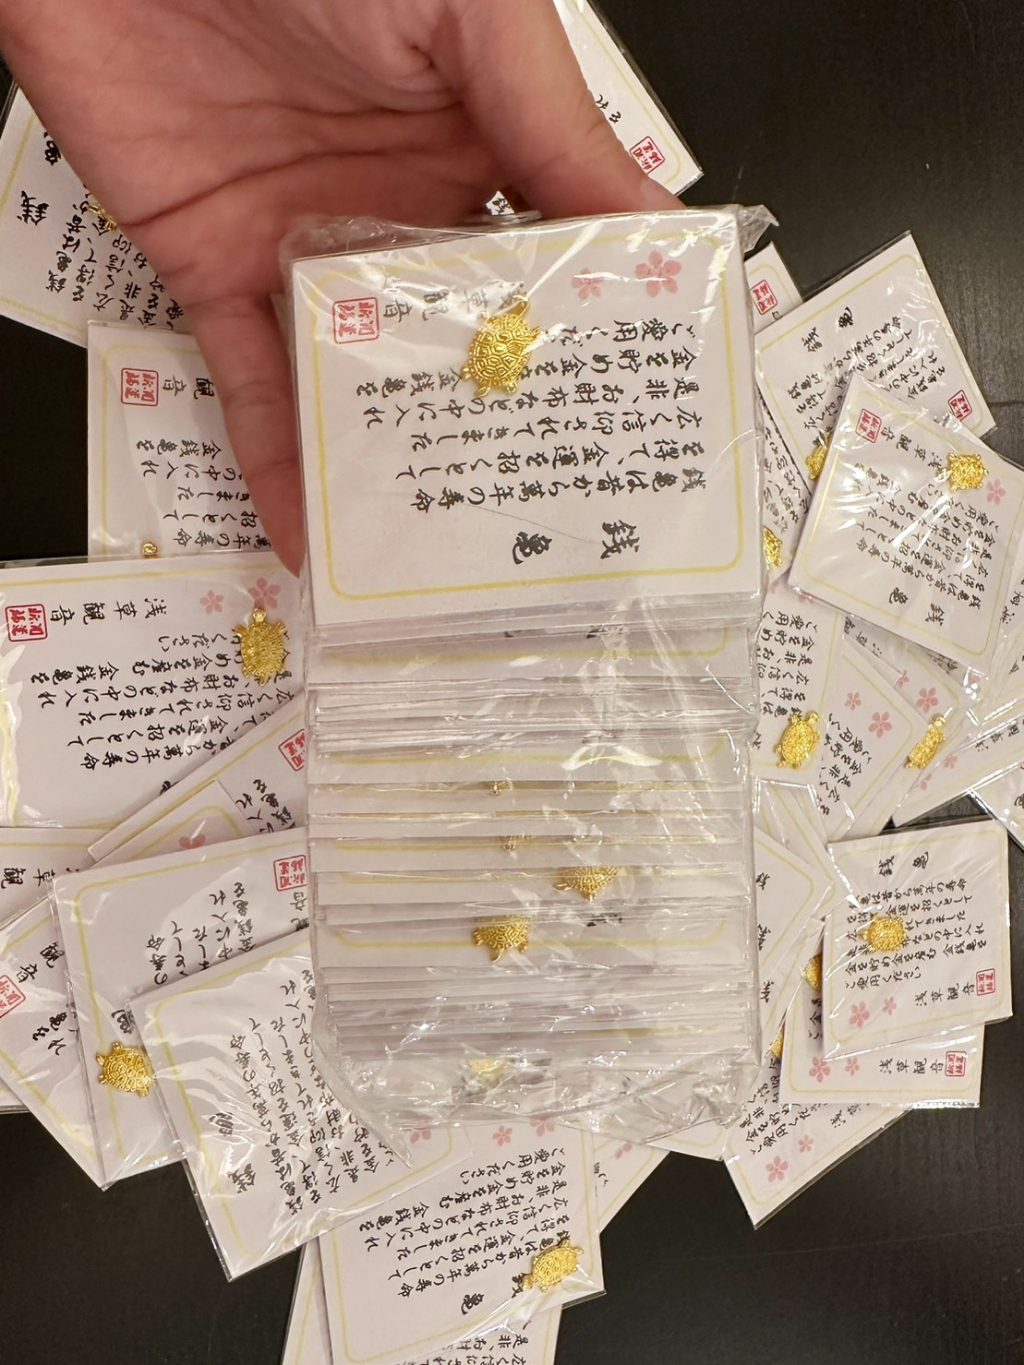 銭亀
銭亀は昔から萬年の寿命
を得て、金運を招くとして
広く信仰されてきました
是非、お財布などの中に入れ
金を貯め金を産む 金銭亀を
ご愛用ください
浅草観音
開運
招福